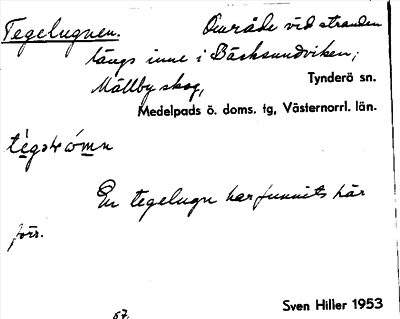 Tegelugnen. Område vid stranden
längs inne i Bäcksundviken;
Mällby skog, Tynderö sn.
Medelpads ö. doms. tg, Västernorrl. län.
En tegelugn har funnits här
förr.
57.
Sven Hiller 1953